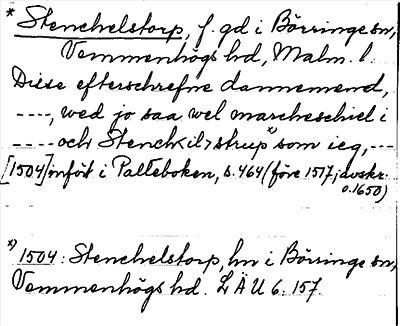 * Stenchelstorp, f. gd i Börringe sn,
Vemmenhögs hd, Malm. l.
Disse efterschrefne dannemend,
----, wed jo saa wel marcheschiel i
---- och Stenck<il>strup *) som ieg, ---
[1504] infört i Palteboken, s. 464 (före 1517; avskr.
o. 1650)
*) 1504: Stenchelstorp, hn i Börringe sn,
Vemmenhögs hd. LÄU 6: 157.